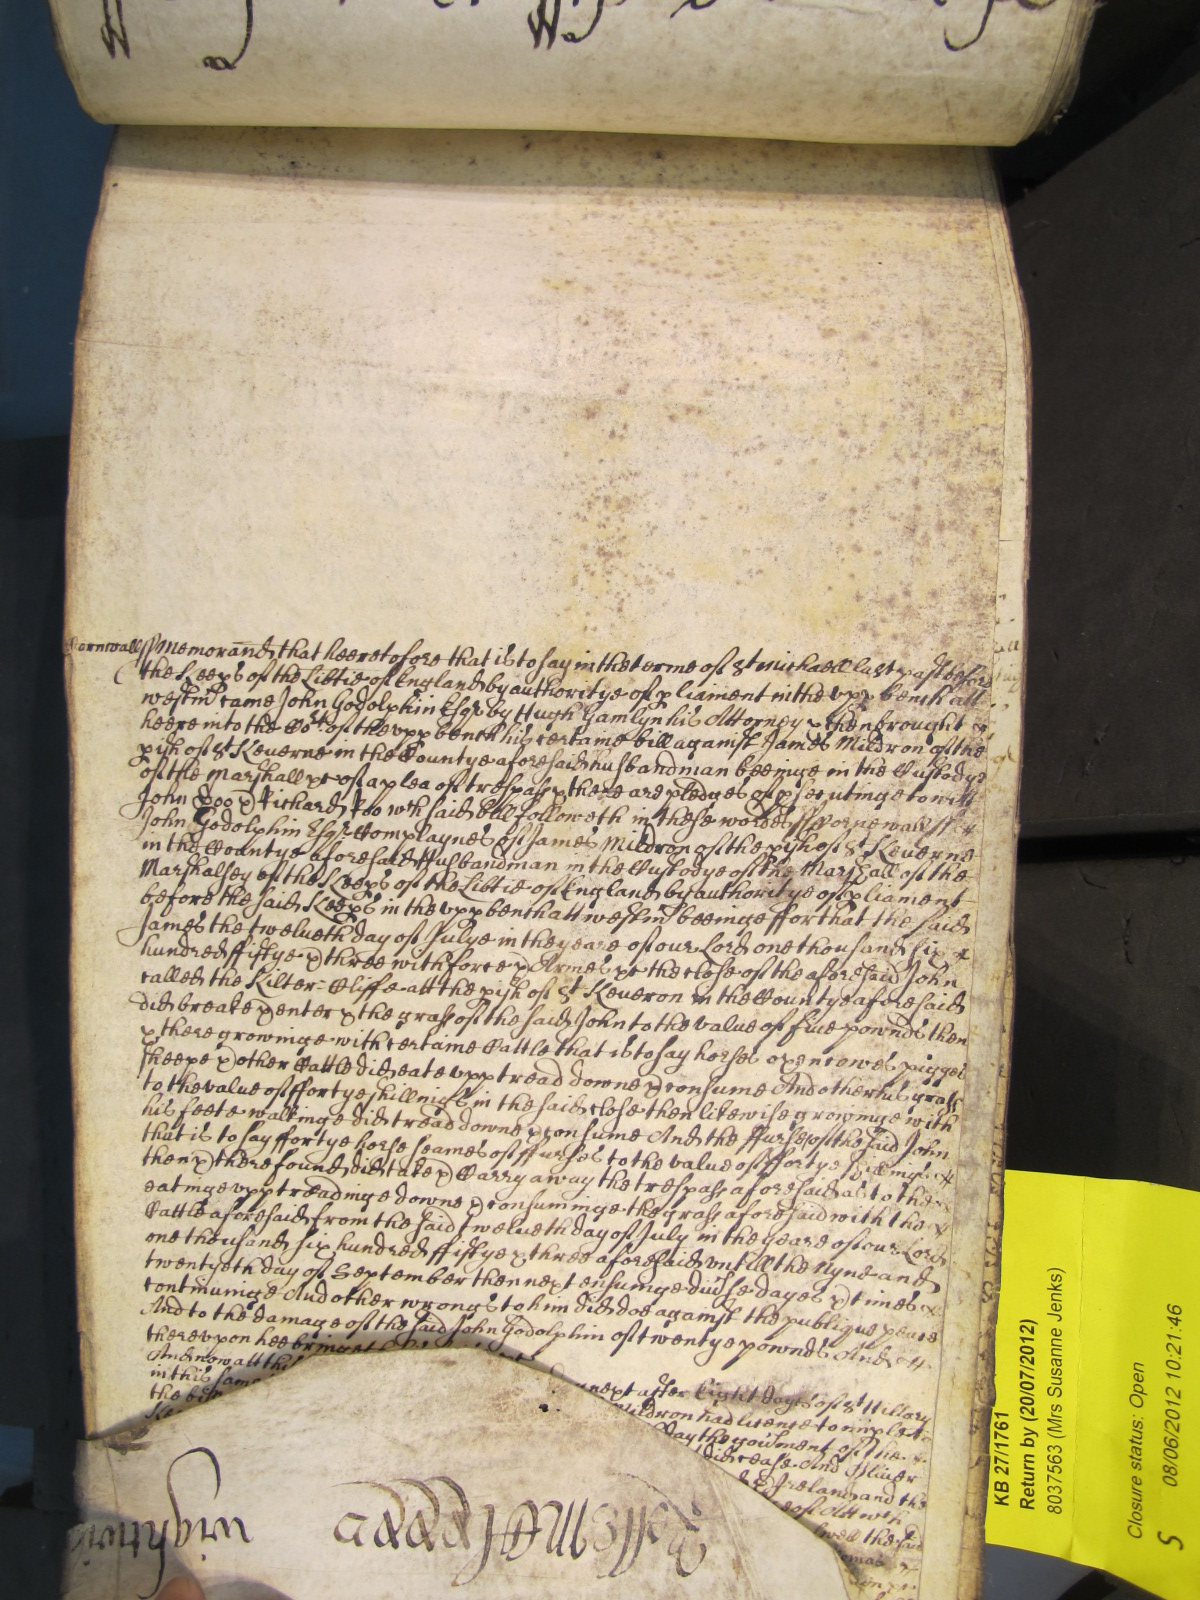 Cornwall ss Memorand that heeretofore that is to say in the terme of St Michaell last past before
the Keeps of the Libtie of England by authoritye of pliament in the upp bench att
westm came John Godolphin Esqr by Hugh Gamlyn his Attorney & then brought
heere into the Cort of the upp bench his certaine bill against James Mildron of the
pish of St Keverne in the Countye aforesaid husbandman beeinge in the Custodye
of the Marshall &c of a plea of trespass & there are pledges of psecutinge to witt
John Doo & Richard Roo wch said bill followeth in these words ss Cornewall ss
John Godolphin Esqr Complaynes of James Mildron of the pish of St Keverne
in the Countye aforesaid Husbandman in the Custodye of the Marshall of the
Marshalsey of the Keeps of the Libtie of England by authoritye of pliament
before the said Keeps in the upp bench att westm beeinge ffor that the said
James the twelueth day of Julye in the yeare of our Lord one thousand six
hundred fiftye & three with force & Armes &c the close of the aforesaid John
called the Kilter=Cliffe att the pish of St Keveron in the Countye aforesaid
did breake & enter & the grass of the said John to the value of five pownds then
& there growinge with certaine Cattle that is to say horses oxen cowes pigges
sheepe & other Cattle did eate upp tread downe & consume And other his grass
to the value of ffortye shillings in the said close then likewise growinge with
his feete walkinge did tread downe & consume And the ffurse of the said John
that is to say ffortye horse seames of ffurses to the value of ffortye shillings
then & there found did take & Carry away the trespass aforesaid as to the
eatinge upp treadinge downe & consuminge the grass aforesaid with the
Cattle aforesaid from the said twelueth day of July in the yeare of our Lord
one thousand six hundred ffiftye & three aforesaid untill the Nyne and
twentyeth day of September then next ensuinge divse dayes & times
continuinge And other wrongs to him did doe against the publique peace
And to the damage of the said John Godolphin of twentye pownds And
thereupon hee bringeth
And now att this next after Eight Days of St Hillary
in this same Mildron had licence to imple
the bill day the govment of the
Ke did cease And Oliver
& Ireland and the
of Att wch
well the said
wightwic
KB 27/1761
Return by (20/07/2012)
8037563 (Mrs Susanne Jenks)
Closure status: Open
08/06/2012 10:21:46
S